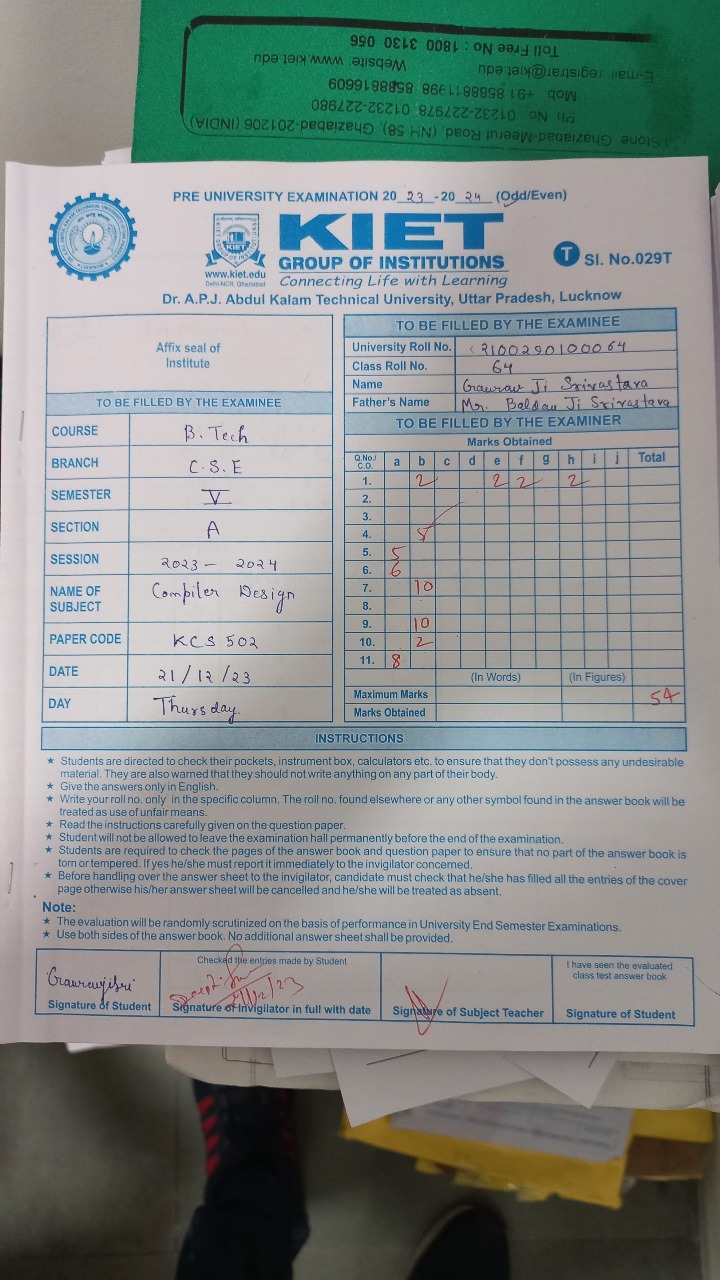 Toll Free No : 1800 3130 056
E-mail registrar@kiet.edu Website: www.kiet.edu
Mob. +91 8588811998 8588816609
Ph. No. 01232-227978 01232-227980
Stone Ghaziabad-Meerut Road, (NH 58), Ghaziabad-201206 (INDIA)
PRE UNIVERSITY EXAMINATION 20 23 -20 24 (Odd/Even)
KIET
KIET
GROUP OF INSTITUTIONS
Connecting Life with Learning
www.kiet.edu
Delhi-NCR, Ghaziabad
T Sl. No.029T
Dr. A.P.J. Abdul Kalam Technical University, Uttar Pradesh, Lucknow
Affix seal of
Institute
TO BE FILLED BY THE EXAMINEE
COURSE B. Tech
BRANCH C.S.E
SEMESTER V
SECTION A
SESSION 2023 - 2024
NAME OF SUBJECT Compiler Design
PAPER CODE KCS 502
DATE 21/12/23
DAY Thursday
TO BE FILLED BY THE EXAMINEE
University Roll No. 2100290100064
Class Roll No. 64
Name Gaurav Ji Srivastava
Father's Name Mr. Baldau Ji Srivastava
TO BE FILLED BY THE EXAMINER
Marks Obtained
Q.No./C.O. a b c d e f g h i j Total
1. 2 2 2 2
2.
3.
4.
5. 5
6. 6
7. 10
8.
9. 10
10. 2
11. 8
(In Words) (In Figures)
Maximum Marks 54
Marks Obtained
INSTRUCTIONS
★ Students are directed to check their pockets, instrument box, calculators etc. to ensure that they don't possess any undesirable
material. They are also warned that they should not write anything on any part of their body.
★ Give the answers only in English.
★ Write your roll no. only in the specific column. The roll no. found elsewhere or any other symbol found in the answer book will be
treated as use of unfair means.
★ Read the instructions carefully given on the question paper.
★ Student will not be allowed to leave the examination hall permanently before the end of the examination.
★ Students are required to check the pages of the answer book and question paper to ensure that no part of the answer book is
torn or tempered. If yes he/she must report it immediately to the invigilator concerned.
★ Before handling over the answer sheet to the invigilator, candidate must check that he/she has filled all the entries of the cover
page otherwise his/her answer sheet will be cancelled and he/she will be treated as absent.
Note:
★ The evaluation will be randomly scrutinized on the basis of performance in University End Semester Examinations.
★ Use both sides of the answer book. No additional answer sheet shall be provided.
Gauravjisri
Signature of Student
Checked the entries made by Student
Signature of Invigilator in full with date
Signature of Subject Teacher
I have seen the evaluated
class test answer book
Signature of Student